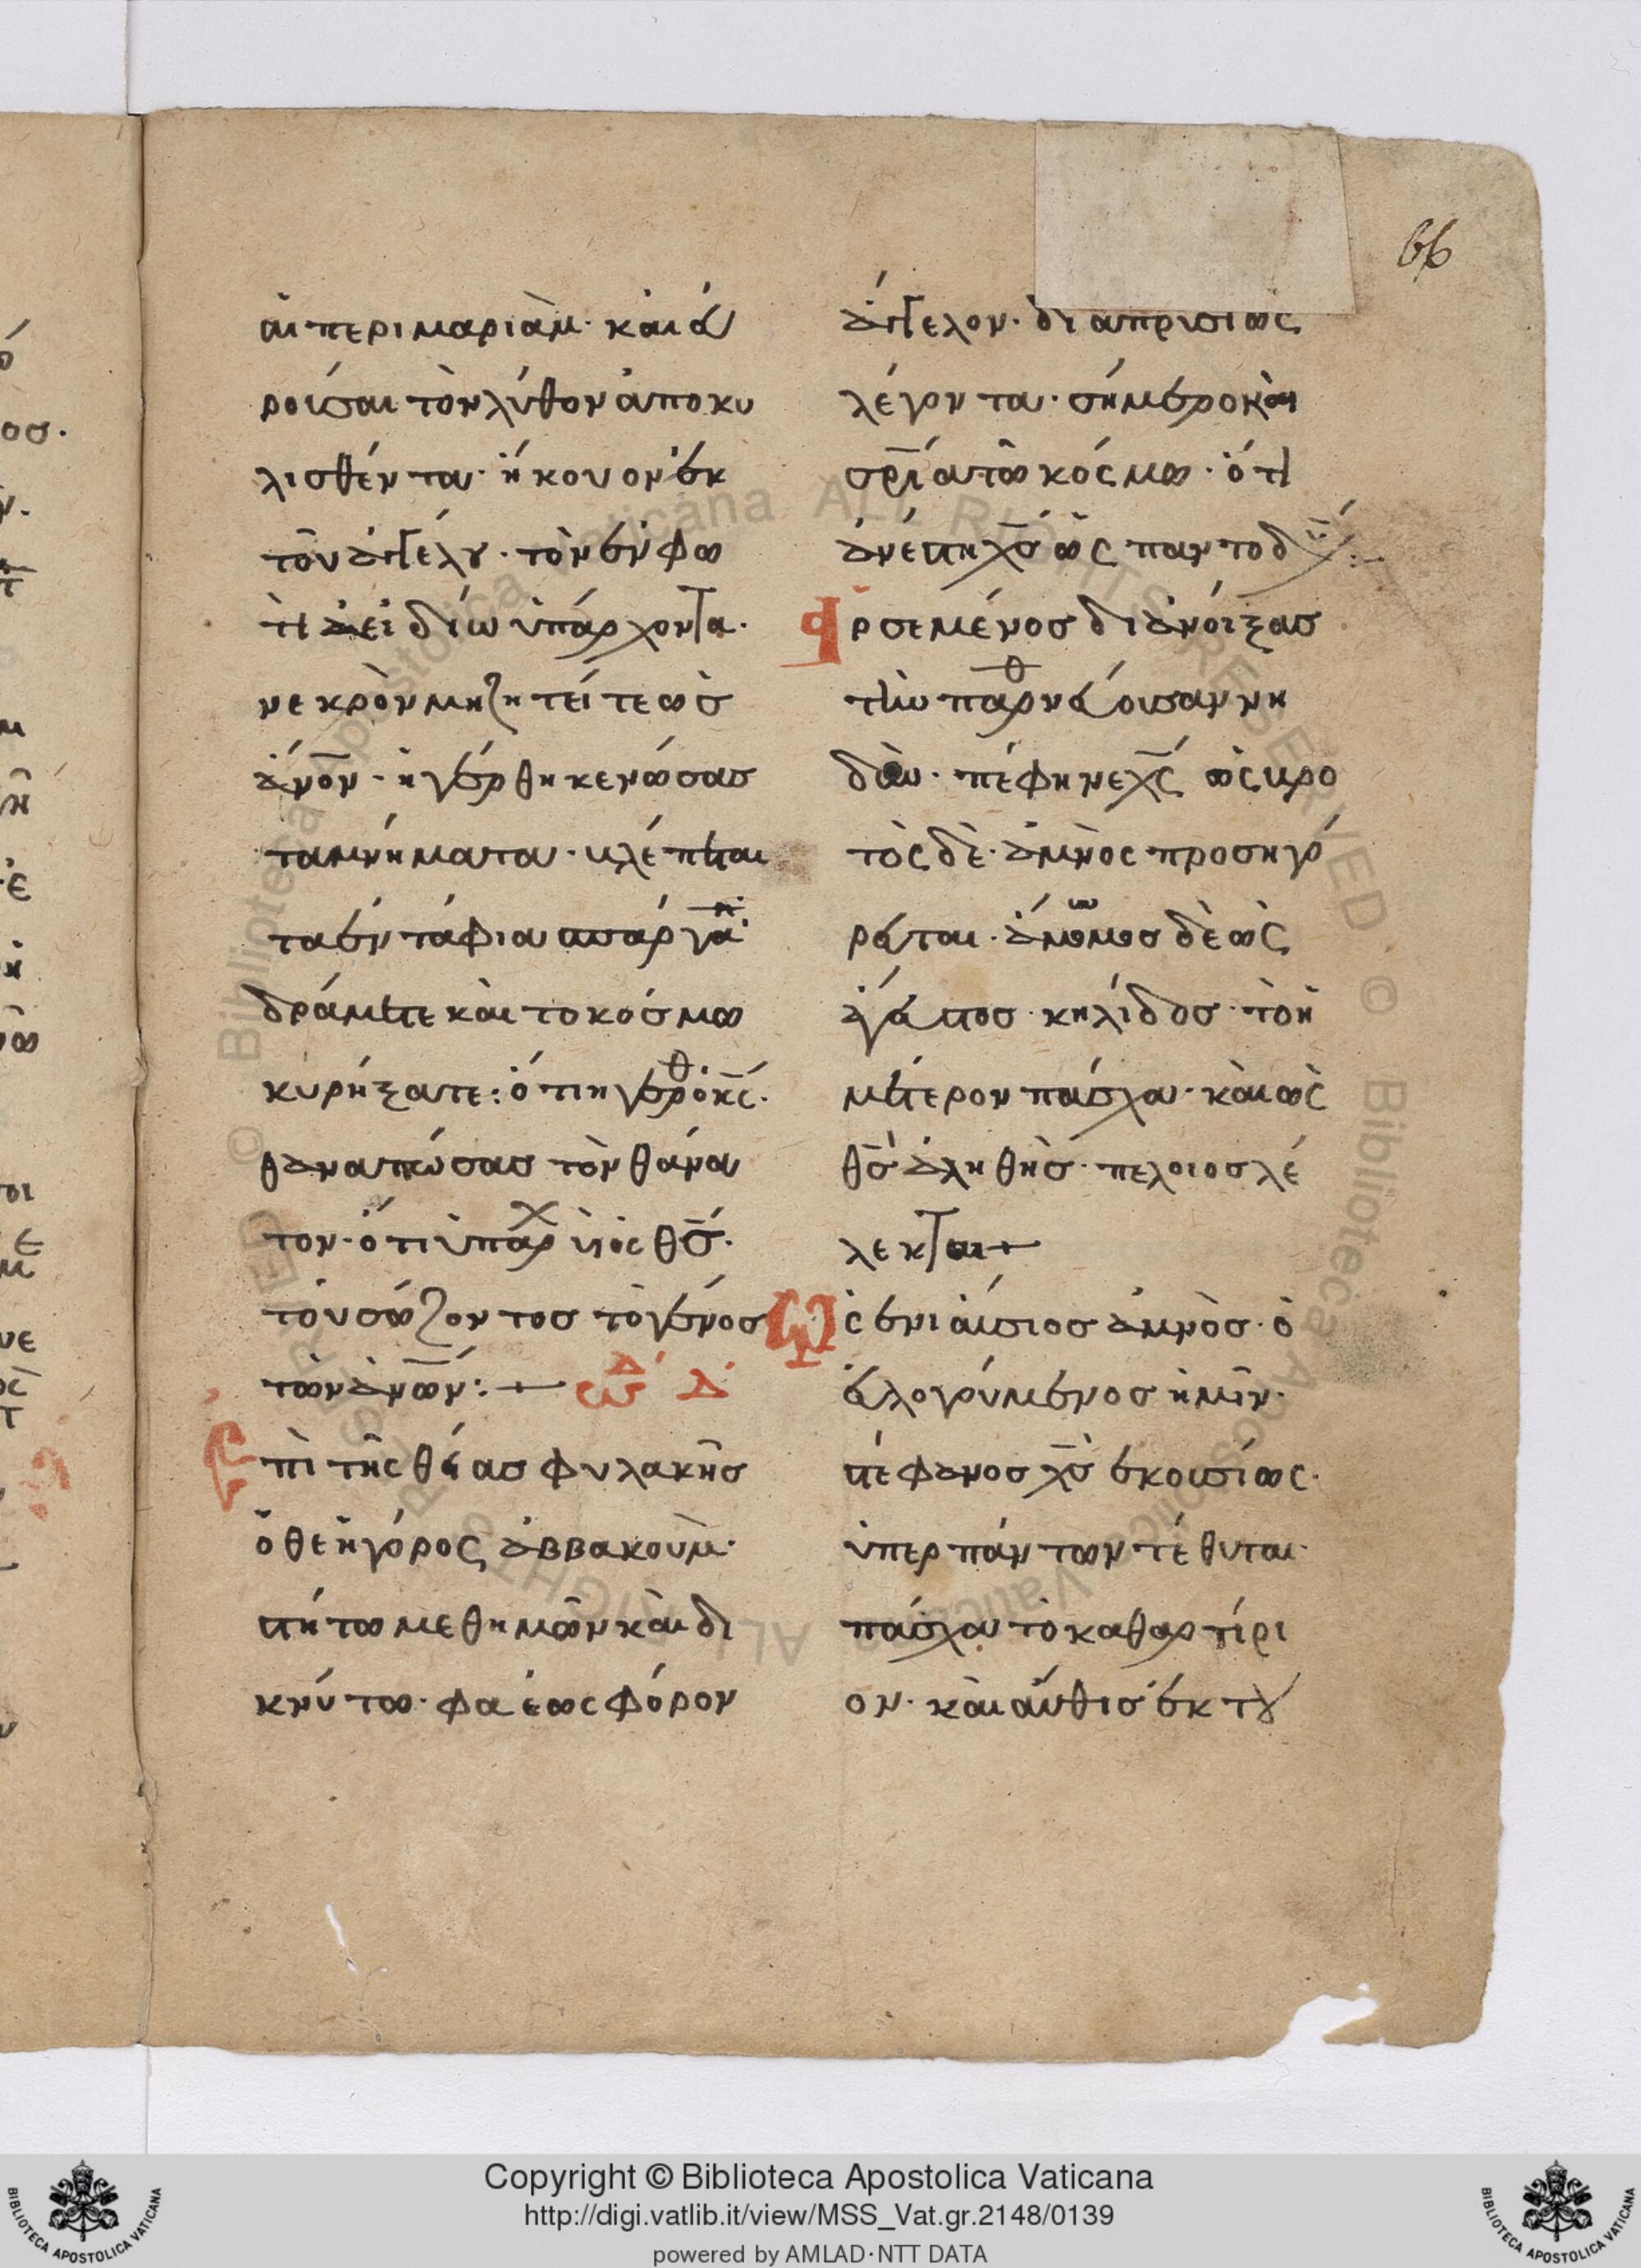 66
αι περι μαριὰμ· καὶ εὑ
ροῦσαι τὸν λύθον ἀποκυ
λισθέντα· ἤκουον ἐκ
τοῦ ἀγγέλου· τὸν ἐν φω
τὶ ἀειδίω ὑπάρχοντα·
νεκρὸν μη ζητείτε ὡς
ἄνον̅· ἠγέρθη κενώσας
τα μνήματα· βλέπεται
τα ἐντάφια σπάργαν
δράμετε καὶ το κόσμω
κυρήξατε: ὅτι ηγέρθ ὁ κς̅·
θανατώσας τὸν θάνα
τον· ὅτι ὑπάρχ υἱὸς θῡ·
τοῦ σώζοντος τὸ γένος
τῶν ἀνων̅:
ωδ̅ Δ
Ἐπὶ τῆς θείας φυλακῆς
ὁ θεηγόρος ἀββακοὺμ·
στήτω μεθ ημῶν καὶ δι
κνύτω· φαέωςφόρον
ἄγγελον· διαπρυσίως
λέγοντα· σήμερον
σρια̅ τῶ κόσμω· ὅτι
ἀνέστη χς̅ ὡς παντοδύ:
Ἄρσεν μένος διἀνοίξας
τὴν παρθενεύουσαν νη
δὺν· πέφηνε χς̅ ὡς βρο
τὸς δὲ· ἀμνὸς προσηγό
ρευται· ἄμωμος δὲ ὡς
ἄγευστος κηλίδος· τὸ ἡ
μέτερον πάσχα· καὶ ὡς
θς̅ ἀληθὴς· τελοιος λέ
λεκται+
Ὡς ἐνιαύσιος ἀμνὸς· ὁ
ευλογούμενος ἡμῖν·
στέφανος χς̅ ἑκουσίως·
ὑπερ πάντων τέθυται·
πάσχα τὸ καθαρτίρι
ον· καὶ αὖθις ἐκ του
Copyright © Biblioteca Apostolica Vaticana
http://digi.vatlib.it/view/MSS_Vat.gr.2148/0139
powered by AMLAD·NTT DATA
BIBLIOTECA APOSTOLICA VATICANA
BIBLIOTECA APOSTOLICA VATICANA